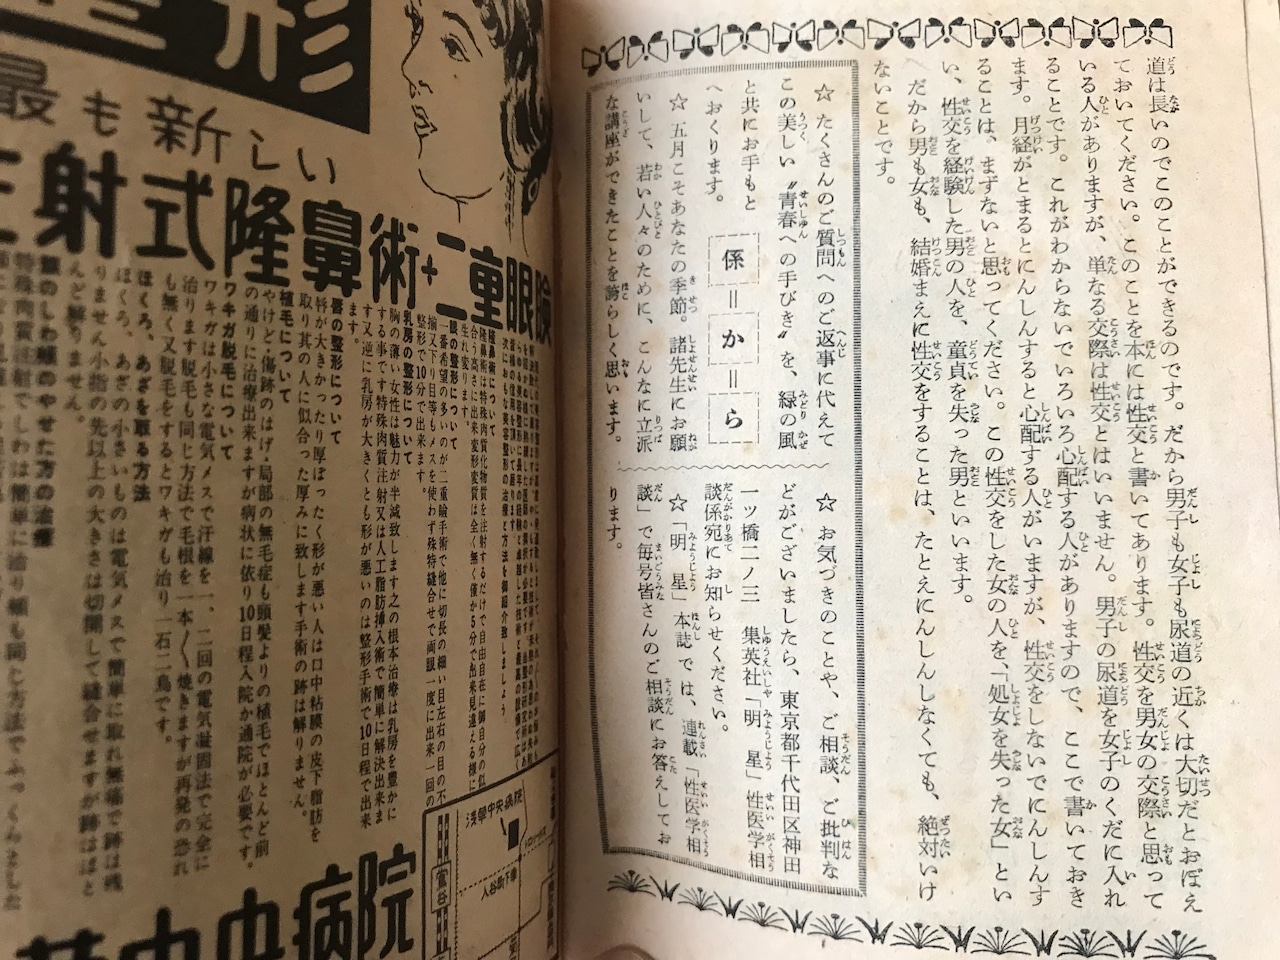 道は長いのでこのことができるのです。だから男子も女子も尿道の近くは大切だとおぼえ
ておいてください。このことを本には性交と書いてあります。性交を男女の交際と思って
いる人がありますが、単なる交際は性交とはいいません。男子の尿道を女子のくだに入れ
ることです。これがわからないでいろいろ心配する人がありますので、ここで書いておき
ます。月経がとまるとにんしんすると心配する人がいますが、性交をしないでにんしんす
ることは、まずないと思ってください。この性交をした女の人を、「処女を失った女」とい
い、性交を経験した男の人を、童貞を失った男といいます。
だから男も女も、結婚まえに性交をすることは、たとえにんしんしなくても、絶対いけ
ないことです。
☆ たくさんのご質問へのご返事に代えて
この美しい〝青春への手びき〟を、緑の風
と共にお手もと
へおくります。
係=から
☆ 五月こそあなたの季節。諸先生にお願
いして、若い人々のために、こんなに立派
な講座ができたことを誇らしく思います。
☆ お気づきのことや、ご相談、ご批判な
どがございましたら、東京都千代田区神田
一ツ橋二ノ三 集英社「明 星」性医学相
談係宛にお知らせください。
☆「明 星」本誌では、連載「性医学相
談」で毎号皆さんのご相談にお答えしてお
ります。
形
最も新しい
射式隆鼻術+二重眼瞼
隆鼻術について
隆鼻術は特殊肉質化物質を注射するだけで自由自在に御自分の似
合う高さに出来変形変質は全く無く僅か5分で出来見違える様に
生れ変ります。
眼の整形について
一番希望の多いのが二重瞼手術で他に切長の細い目左右の目の不
揃又下り目等もメスを使わず特殊縫合せで両眼一度に出来一回の
整形で10分で出来ます。
乳房の整形について
胸の薄い女性は魅力が半減致します之の根本治療は乳房を豊かに
する事です特殊肉質注射又は人工脂肪挿入術で簡単に解決出来ま
す又逆に乳房が大きくとも形が悪いのは整形手術で10日程で出来
ます。
唇の整形について
唇が大きかったり厚ぼったく形が悪い人は口中粘膜の皮下脂肪を
取り其の人に似合った厚みに致します手術の跡は解りません。
植毛について
やけど・傷跡のはげ・局部の無毛症も頭髪よりの植毛でほとんど前
の通りに治療出来ますが病状に依り10日程入院か通院が必要です。
ワキガ脱毛について
ワキガは小さな電気メスで汗線を一、二回の電気凝固法で完全に
治ります脱毛も同じ方法で毛根を一本〱焼きますが再発の恐れ
も無く又脱毛をするとワキがも治り一石二鳥です。
ほくろ、あざを取る方法
ほくろ、あざの小さいものは電気メスで簡単に取れ無痛で跡は残
りません小指の先以上の大きさは切開して縫合せますが跡はほと
んど解りません。
中央病院
浅草中央病院
入谷町下車
鶯谷